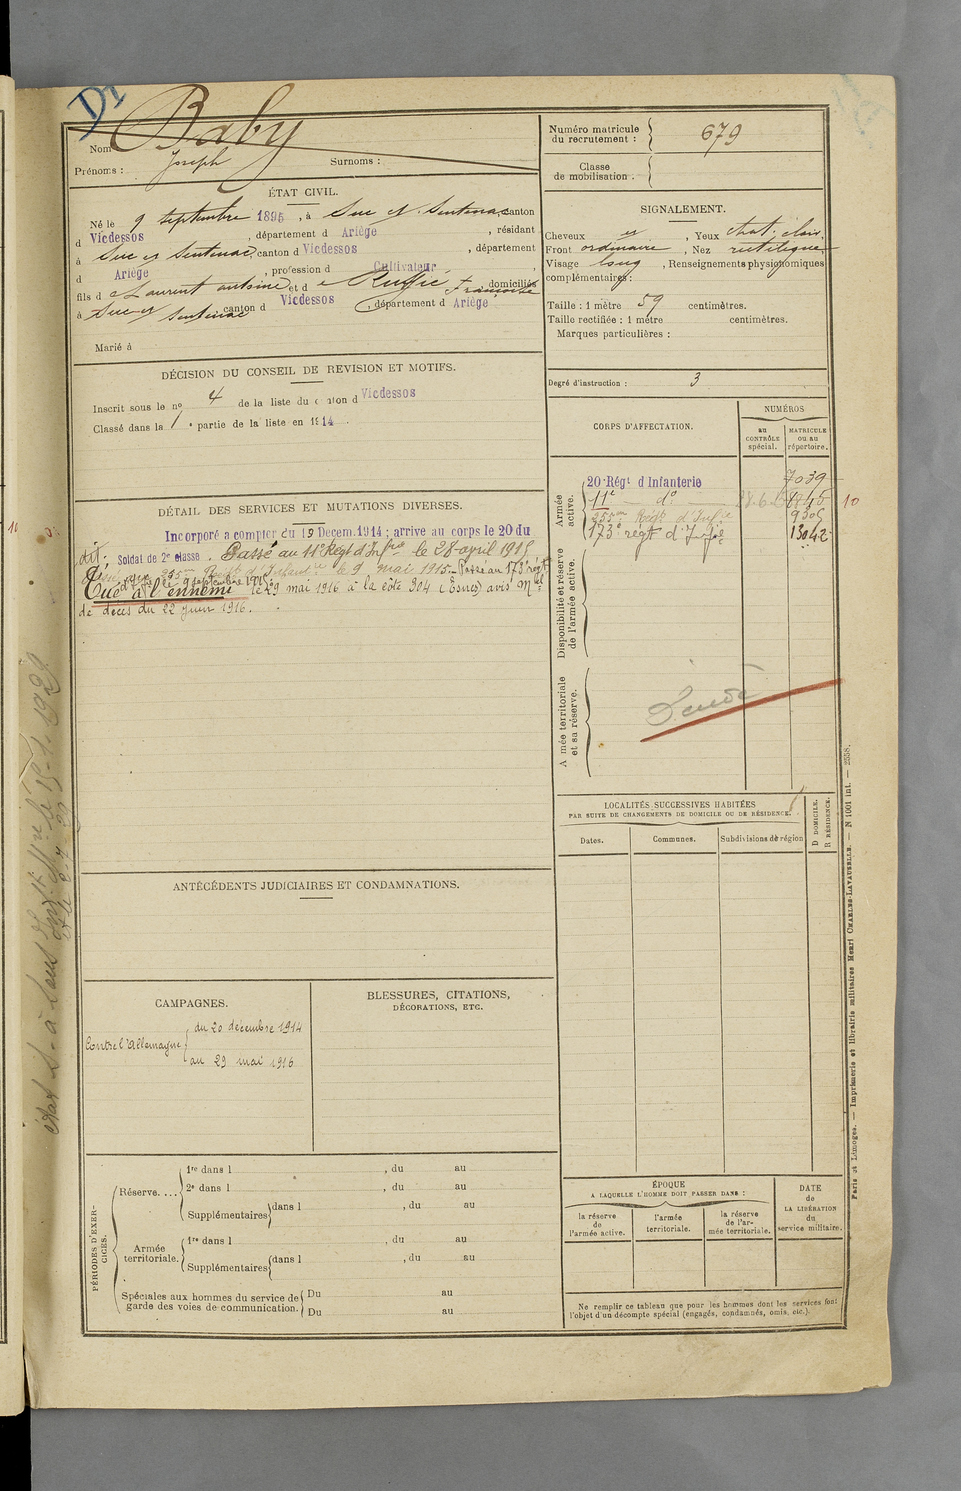 Nom Baby
Prénoms : Joseph Surnoms :
ÉTAT CIVIL.
Né le 9 septembre 1895, à Suc et Sentenac canton
d Vicdessos, département d Ariège, résidant
à Suc et Sentenac, canton d Vicdessos, département
d Ariège, profession d Cultivateur,
fils d Laurent antoine et d Ruffié Françoise, domiciliés
à Suc et Sentenac canton d Vicdessos, département d Ariège
Marié à
DÉCISION DU CONSEIL DE REVISION ET MOTIFS.
Inscrit sous le no 4 de la liste du canton d Vicdessos
Classé dans la 1e partie de la liste en 1914.
DÉTAIL DES SERVICES ET MUTATIONS DIVERSES.
Incorporé a compter du 19 Decem. 1914 ; arrive au corps le 20 du
dit; Soldat de 2e classe. Passé au 11e Régt d'Infrie le 28 april 1915
255me Régt d'Infantie le 9 mai 1915. Passé au 173e régt
d'Infie le 9 septembre 1915.
Tué à l'ennemi le 29 mai 1916 à la côte 304 (Esnes) avis Mel
de décès du 22 juin 1916.
ANTÉCÉDENTS JUDICIAIRES ET CONDAMNATIONS.
CAMPAGNES.
Contre l'Allemagne du 20 décembre 1914
au 29 mai 1916
BLESSURES, CITATIONS,
DÉCORATIONS, ETC.
PÉRIODES D'EXERCICES.
Réserve.... 1re dans l , du au
2e dans l , du au
Supplémentaires dans l , du au
Armée territoriale. 1re dans l , du au
Supplémentaires dans l , du au
Spéciales aux hommes du service de Du au
garde des voies de communication. Du au
Numéro matricule
du recrutement : 679
Classe
de mobilisation :
SIGNALEMENT.
Cheveux , Yeux chat. clair.
Front ordinaire , Nez rectiligne
Visage long , Renseignements physiognomiques
complémentaires :
Taille : 1 mètre 59 centimètres.
Taille rectifiée : 1 mètre centimètres.
Marques particulières :
Degré d'instruction : 3
CORPS D'AFFECTATION.
NUMÉROS
au
CONTRÔLE
spécial.
MATRICULE
ou au
répertoire.
Armée
active.
20 Régt d'Infanterie 7039
11e do
255me Régt d'Infie 9305
173e régt d'Infie 13042
10
Disponibilité et réserve
de l'armée active.
Armée territoriale
et sa réserve.
LOCALITÉS SUCCESSIVES HABITÉES
PAR SUITE DE CHANGEMENTS DE DOMICILE OU DE RÉSIDENCE.
Dates. Communes. Subdivisions de région
D DOMICILE.
R RÉSIDENCE.
ÉPOQUE
A LAQUELLE L'HOMME DOIT PASSER DANS :
la réserve
de
l'armée active.
l'armée
territoriale.
la réserve
de l'armée territoriale.
DATE
de
LA LIBÉRATION
du
service militaire.
Ne remplir ce tableau que pour les hommes dont les services font
l'objet d'un décompte spécial (engagés, condamnés, omis, etc.).
Paris et Limoges. — Imprimerie et librairie militaires Henri CHARLES-LAVAUZELLE. — N 1001 int. — 2558.